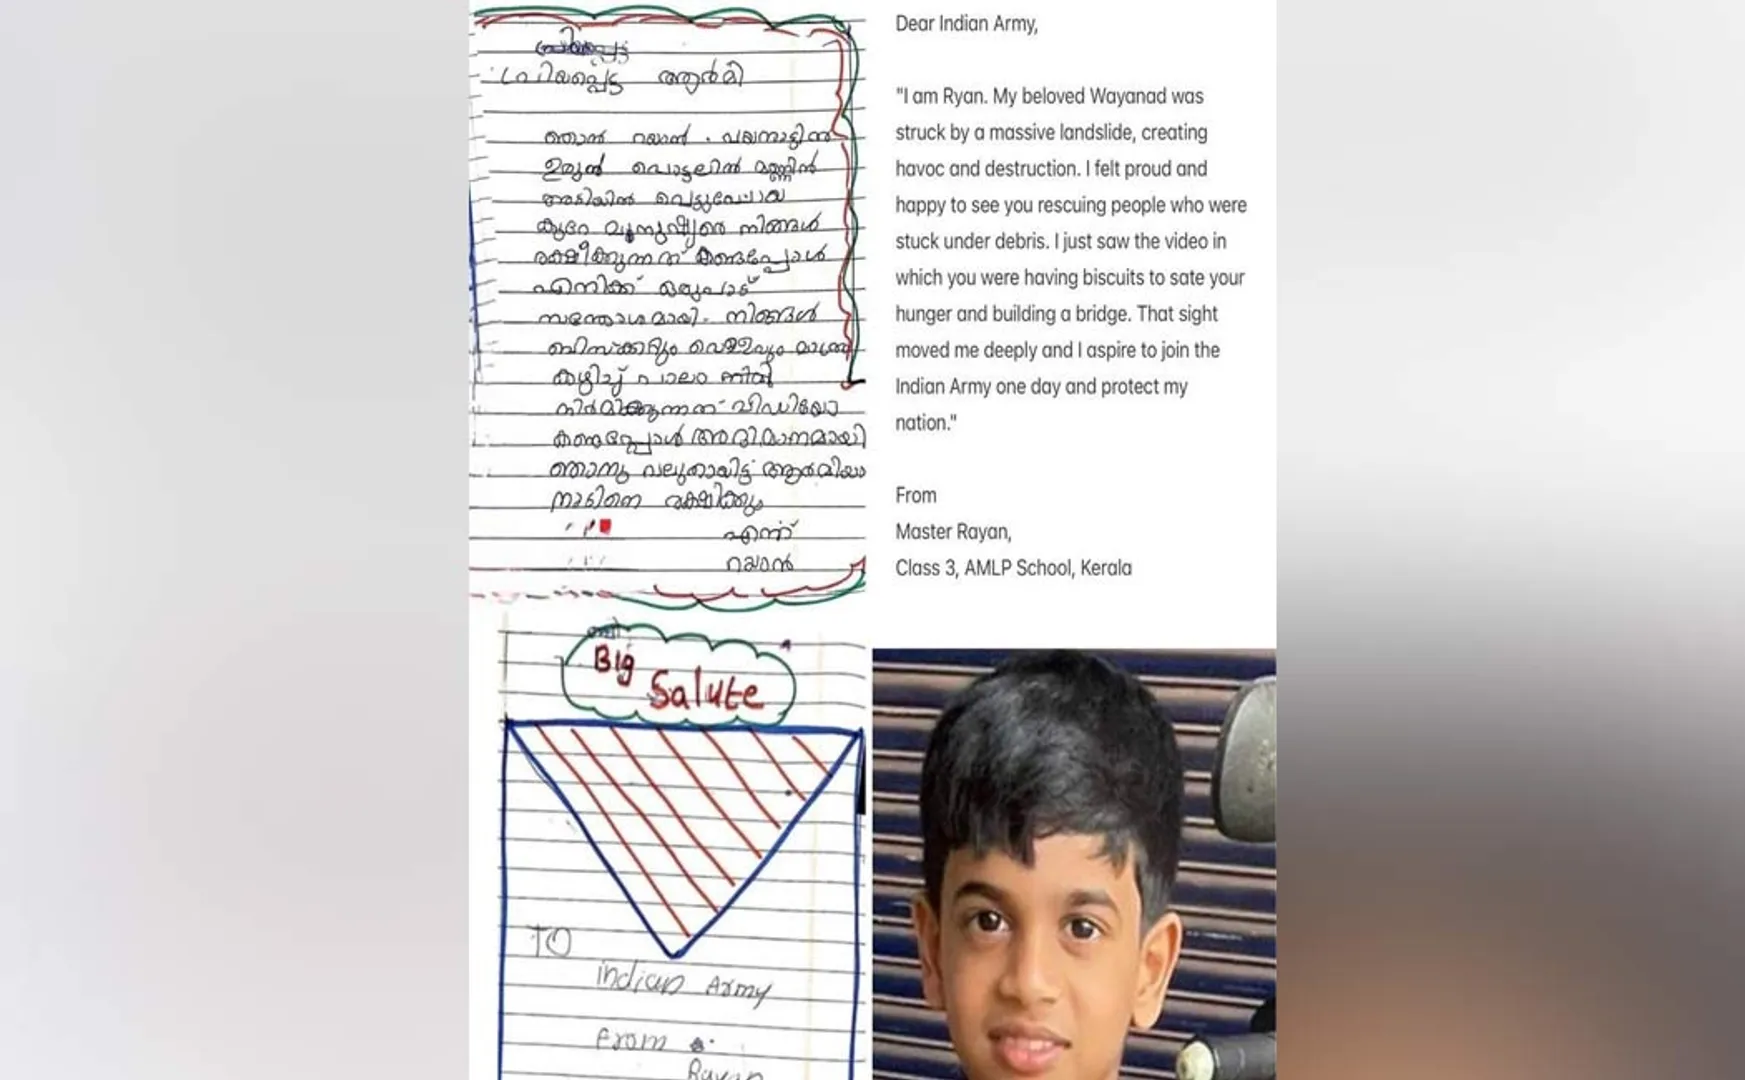 പ്രിയപ്പെട്ട ആർമി
ഞാൻ റയാൻ. വയനാട്ടിൽ
ഉരുൾ പൊട്ടലിൽ മണ്ണിൻ
അടിയിൽ പെട്ടുപോയ
കുറേ മനുഷ്യരെ നിങ്ങൾ
രക്ഷിക്കുന്നത് കണ്ടപ്പോൾ
എനിക്ക് ഒരുപാട്
സന്തോശമായി. നിങ്ങൾ
ബിസ്ക്കറ്റും വെള്ളവും മാത്രം
കഴിച്ച് പാലം
നിർമിക്കുന്നത് വിഡിയോ
കണ്ടപ്പോൾ അഭിമാനമായി
ഞാനു വലുതായിട്ട്
നാടിനെ രക്ഷിക്കും
എന്ന്
റയാൻ
Big
Salute
TO
indian Army
From
Rayan
Dear Indian Army,
"I am Ryan. My beloved Wayanad was
struck by a massive landslide, creating
havoc and destruction. I felt proud and
happy to see you rescuing people who were
stuck under debris. I just saw the video in
which you were having biscuits to sate your
hunger and building a bridge. That sight
moved me deeply and I aspire to join the
Indian Army one day and protect my
nation."
From
Master Rayan,
Class 3, AMLP School, Kerala